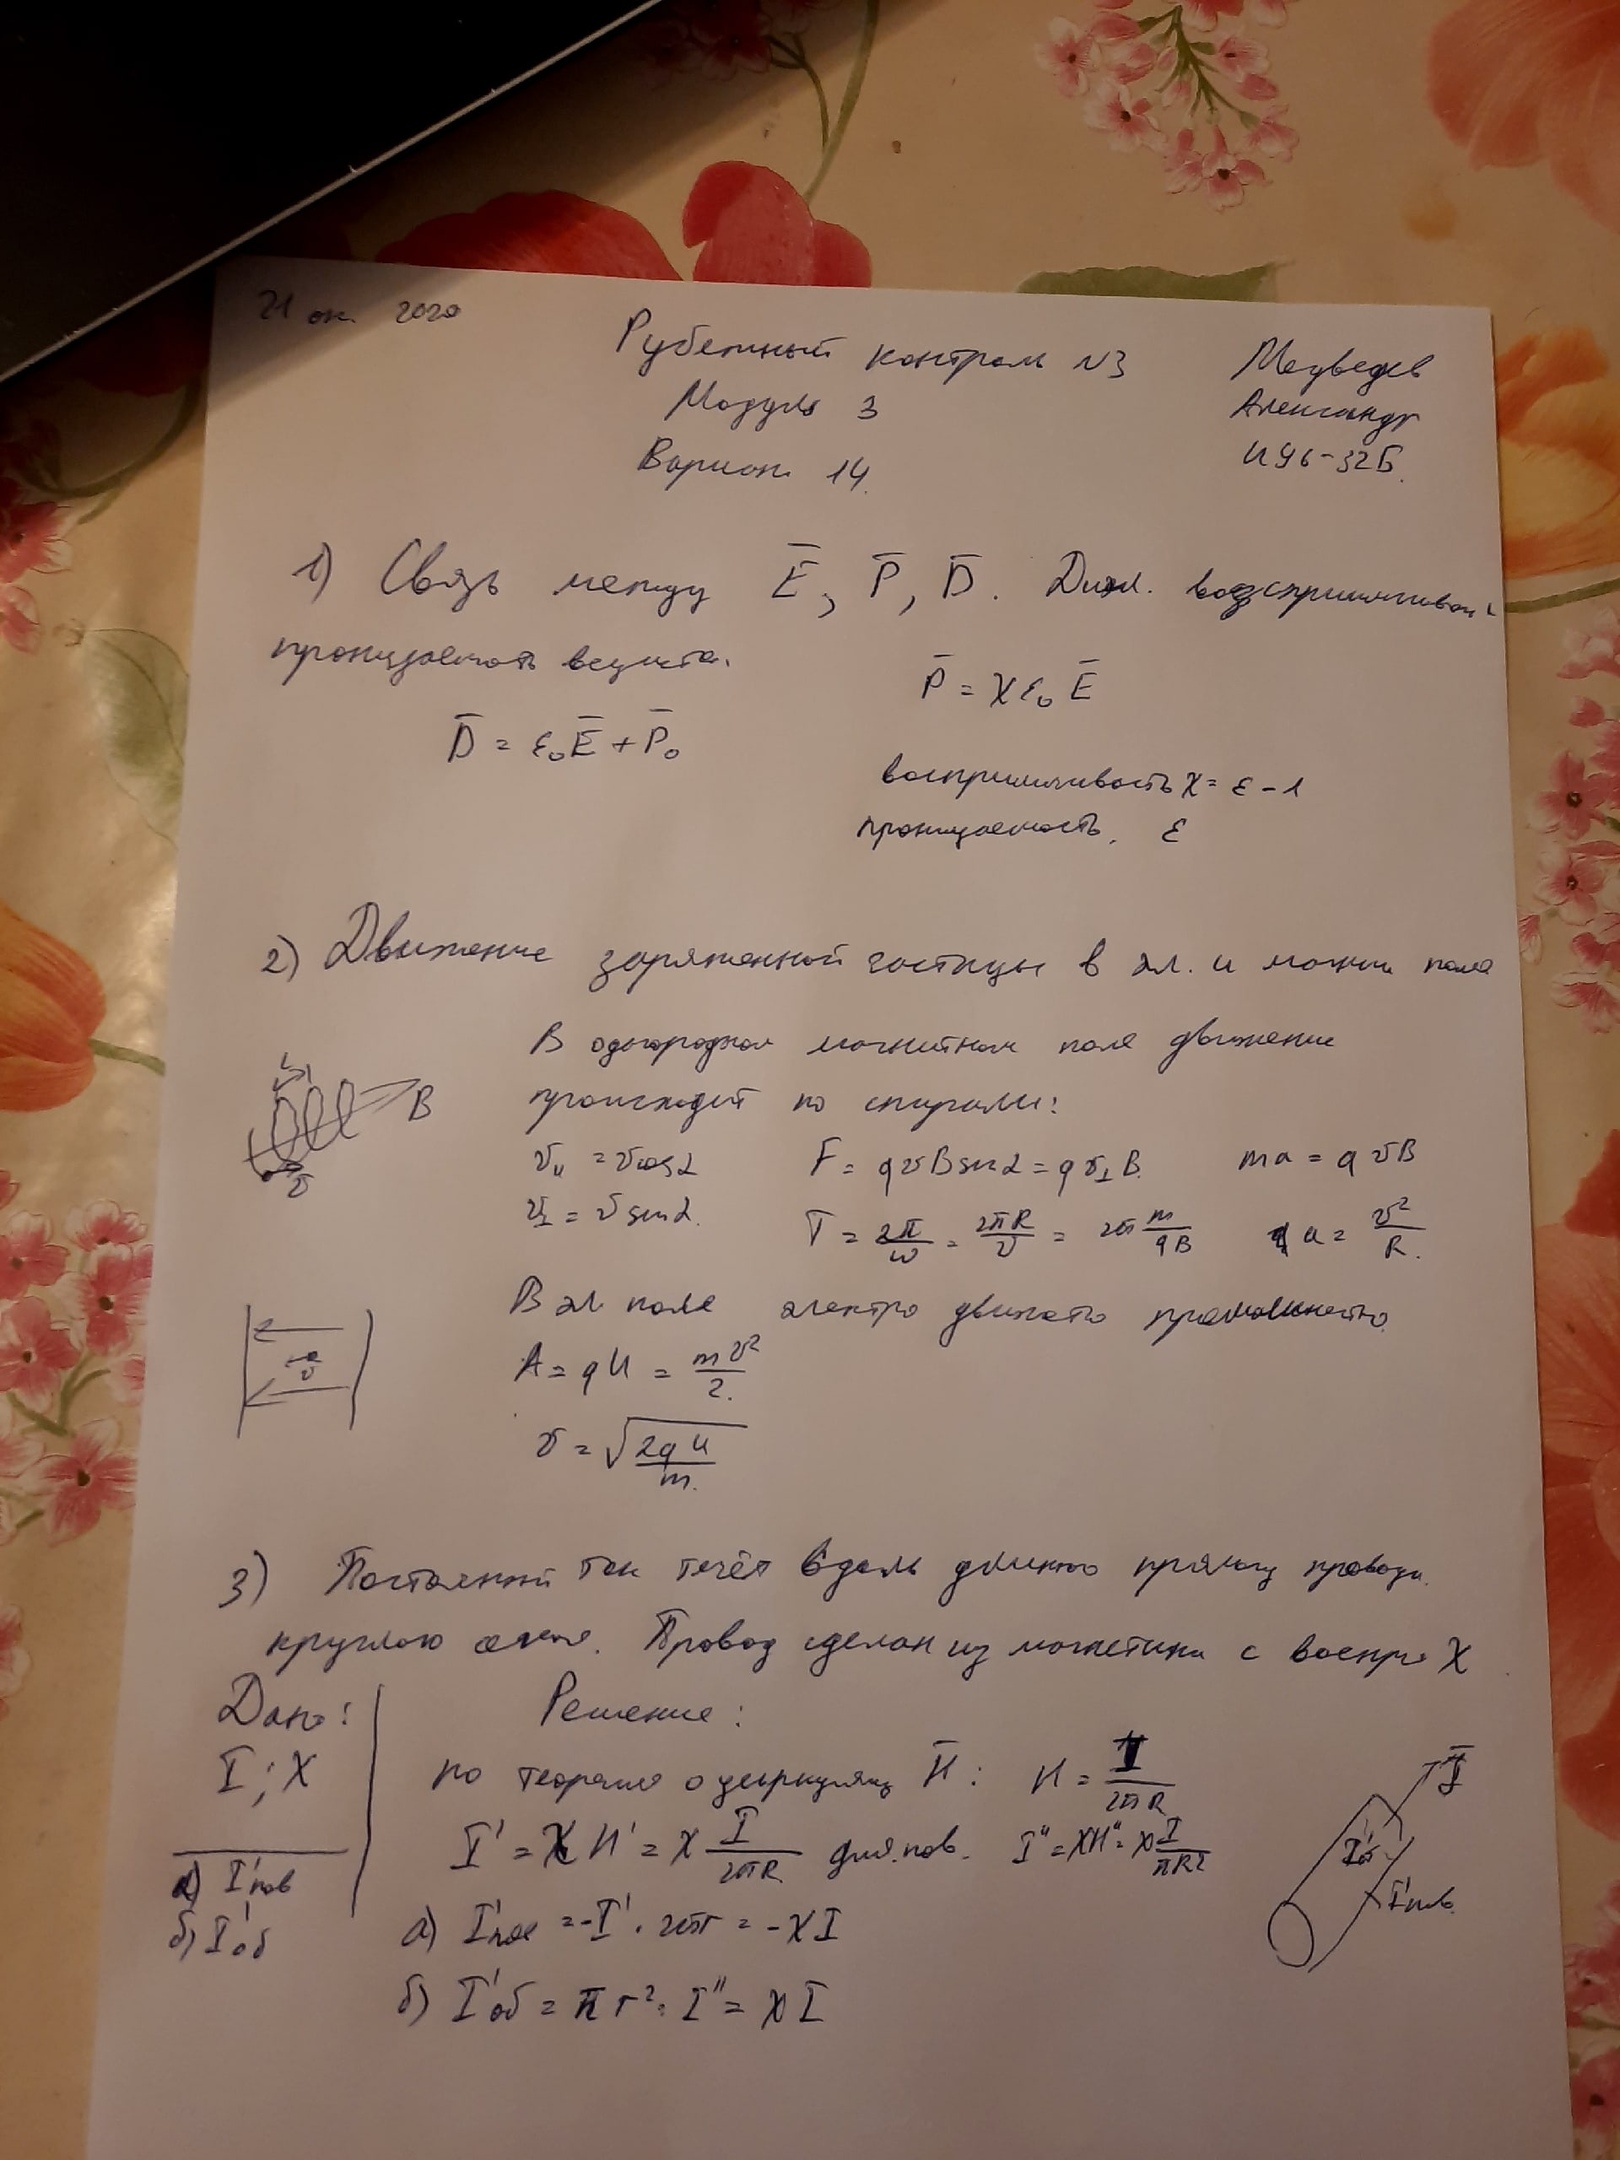 21 ок. 2020
Рубежный контроль №3
Медведев
Модуль 3
Александр
Вариан 14.
ИУ6-32Б.
1) Связь между E̅, P̅, D̅. Диэл. восприимчивои
проницаемость вещества.
P̅ = χε₀E̅
D̅ = ε₀E̅ + P̅₀
восприимчивость χ = ε - 1
проницаемость. ε
2) Движение заряженной частицы в эл. и магнит поле
В однородном магнитном поле движение
происходит по спирали:
B
v
v॥ = v cos α F = qvB sin α = qv⊥B. ma = qvB
v⊥ = v sin α. T = 2π/ω = 2πR/v = 2π m/qB a = v²/R.
В эл поле электро движется прямолинейно.
v
A = qU = mv²/2.
v = √(2qU/m).
3) Постоянный ток течёт вдоль длинного прямого провода.
круглого сечен. Провод сделан из магнетика с воспр. χ
Дано: Решение:
I; χ по теореме о циркуляц H̅: H = I/2πR
I' = χH' = χ I/2πR для пов. I'' = χH'' = χ I/πR²
а) I'пов
б) I'об
а) I'пов = -I' · 2πr = -χI
б) I'об = πr² · I'' = χI
I
I'об
I'пов.